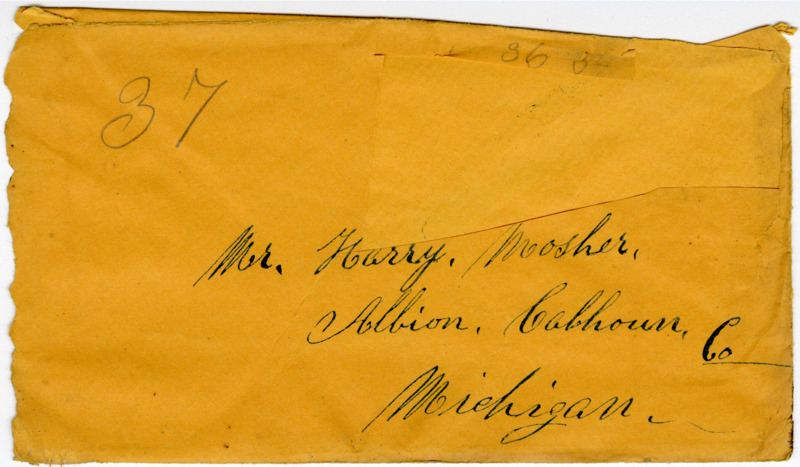 36 3
37
Mr. Harry. Mosher.
Albion. Calhoun. Co
Michigan.